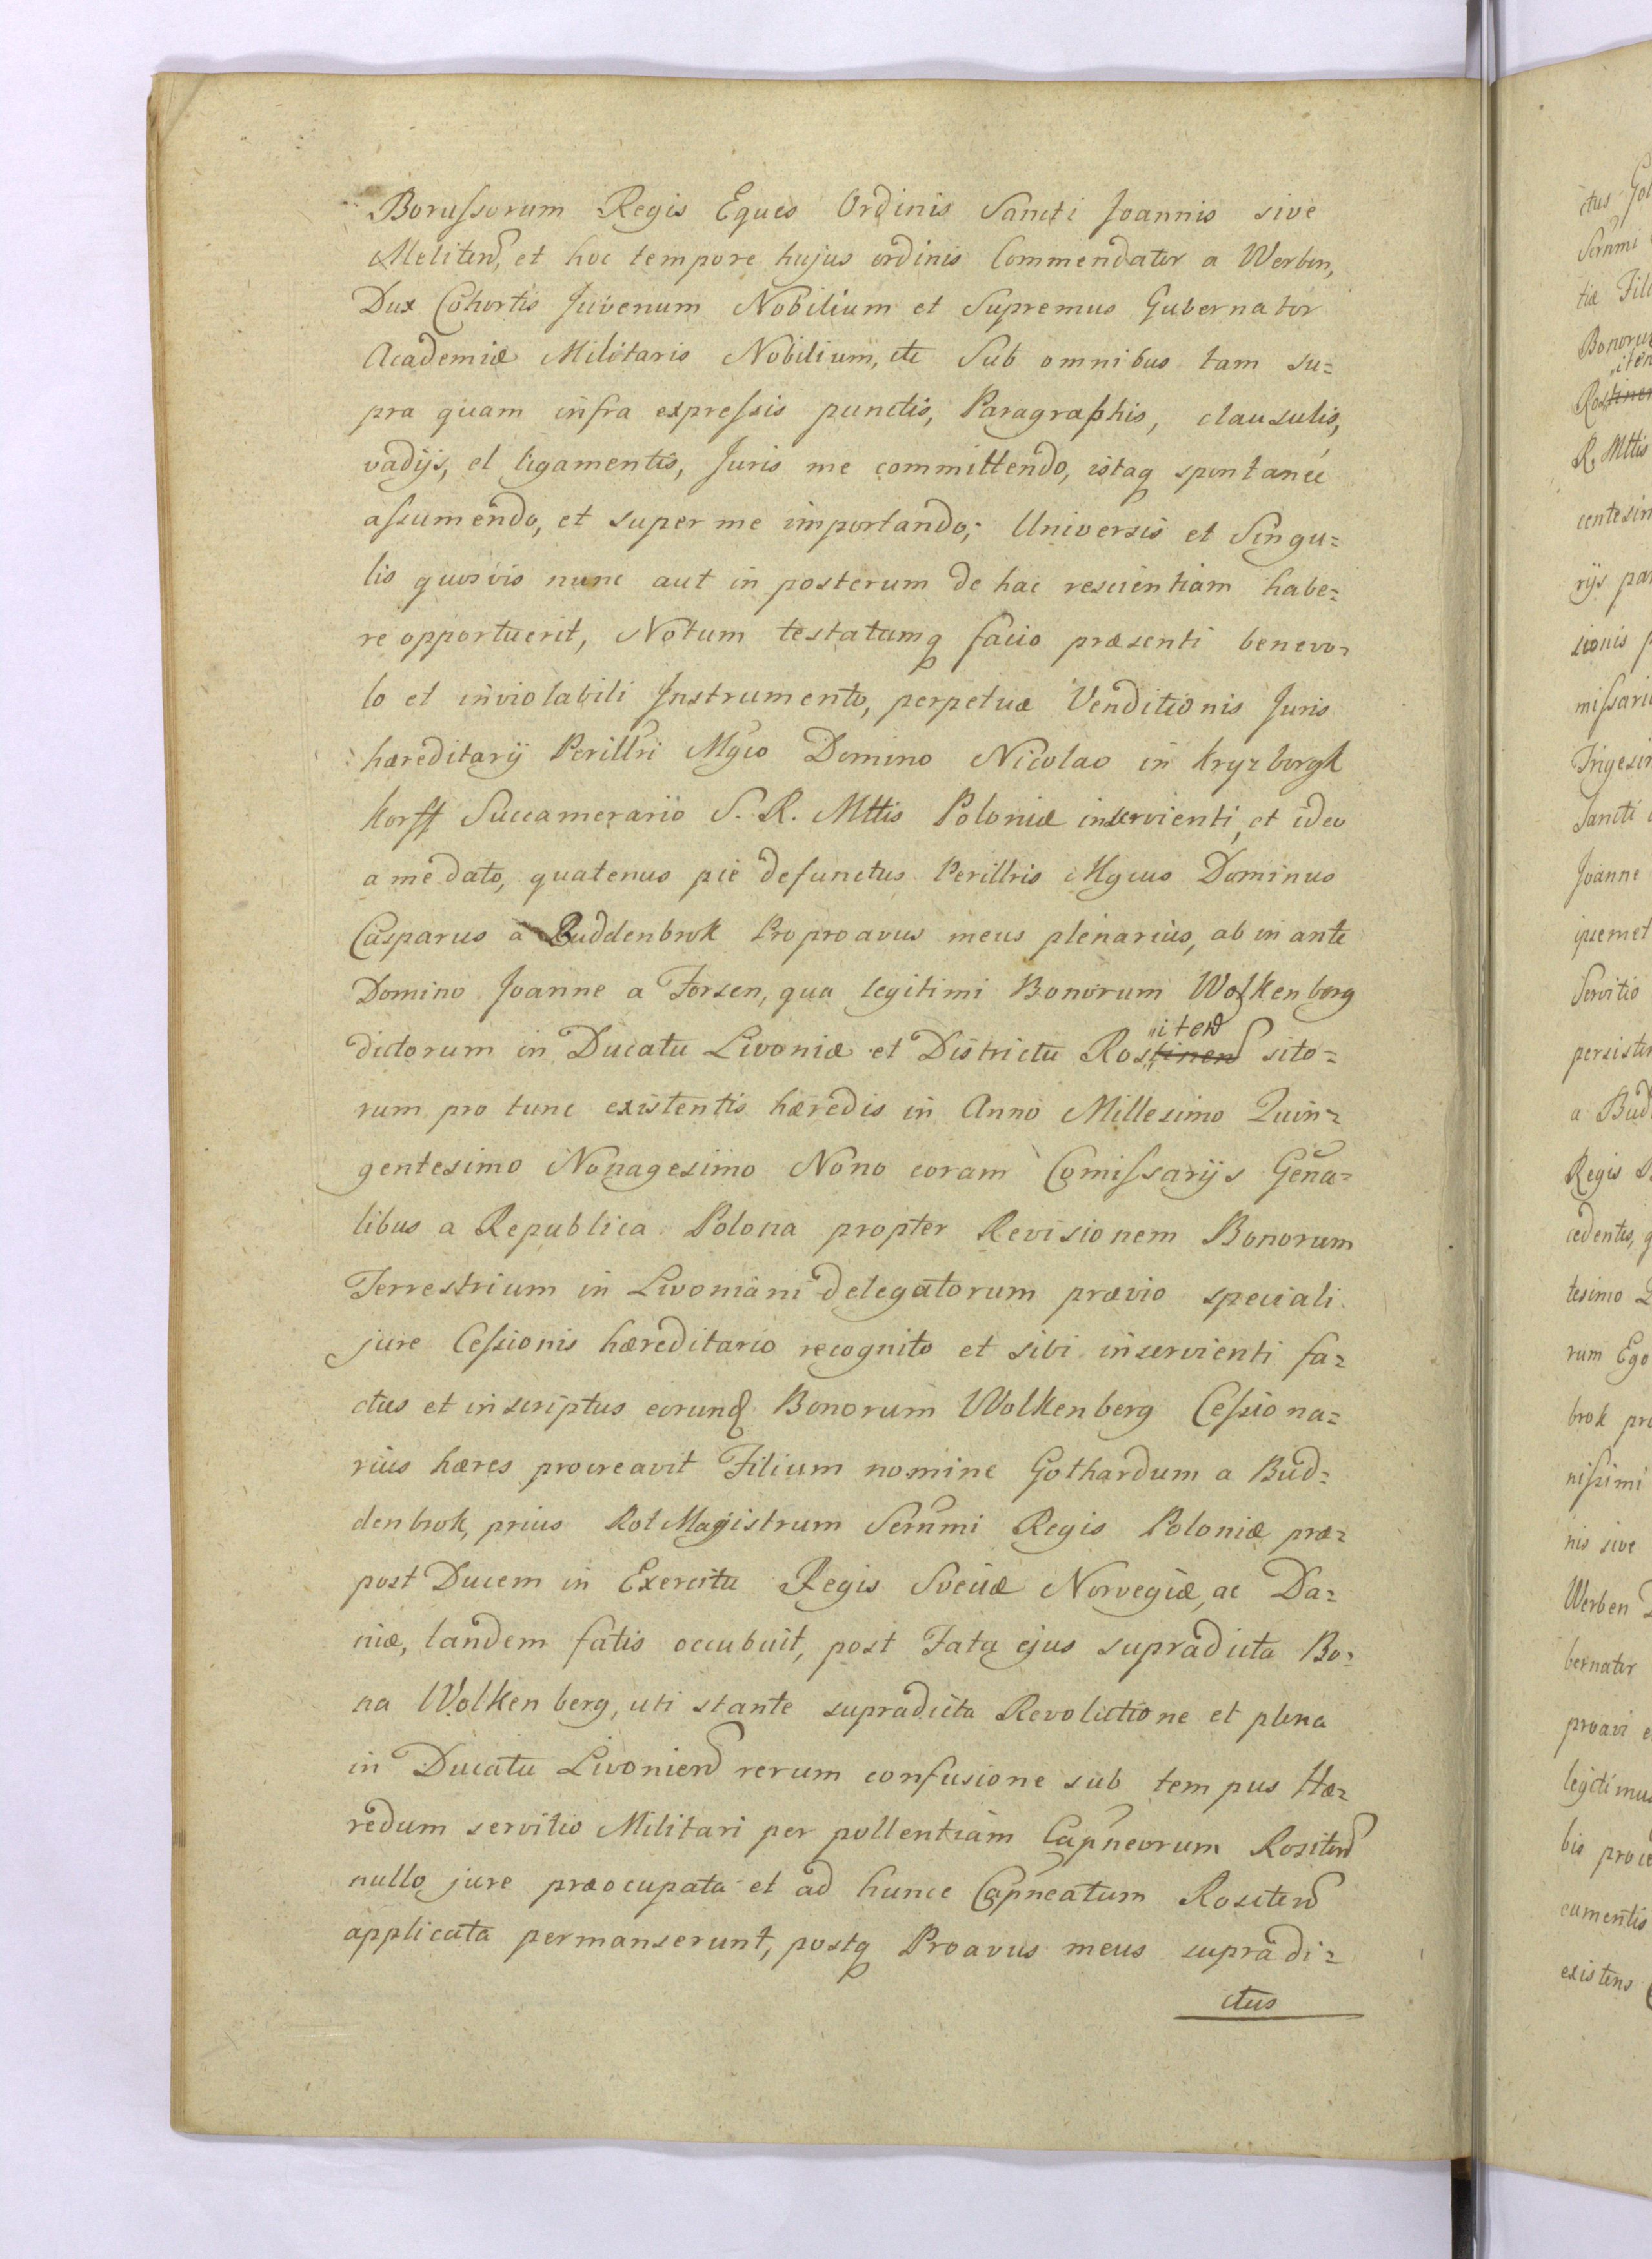 Borussorum Regis Eques Ordinis Sancti Joannis sive
Meliten, et hoc tempore hujus ordinis Commendator a Werben,
Dux Cohortis Juvenum Nobilium et Supremus Gubernator
Academiæ Militaris Nobilium, etc Sub omnibus tam su=
pra quam infra expressis punctis, Paragraphis, clausulis,
vadijs, et ligamentis, Juris me committendo, istaq spontanee
assumendo, et super me importando; Universis et Singu=
lis quorvis nunc aut in posterum de hac rescientiam habe=
re opportuerit, Notum testatumq facio præsenti benevo=
lo et inviolabili Instrumento, perpetuæ Venditionis Juris
hæreditarij Perillri Mgco Domino Nicolao in Kryzborgk
Korff Succamerario S. R. Mttis Poloniæ inservienti, et ideo
a me dato, quatenus pie defunctus Perillris Mgcus Dominus
Casparus a Buddenbrok Proproavus meus plenarius, ab in ante
Domino Joanne a Forsen, qua legitimi Bonorum Wolkenberg
dictorum in Ducatu Livoniæ et Districtu Rostinen iten sito=
rum pro tunc existentis hæredis in Anno Millesimo Quin=
gentesimo Nonagesimo Nono coram Comissarijs Gena=
libus a Republica Polona propter Revisionem Bonorum
Terrestrium in Livoniam delegatorum prævio speciali
jure Cessionis hæreditario recognito et sibi inservienti fa=
ctus et inscriptus eorund Bonorum Wolkenberg Cessiona=
rius hæres procreavit Filium nomine Gothardum a Bud=
denbrok, prius RotMagistrum Sernmi Regis Poloniæ præ=
post Ducem in Exercitu Regis Sveciæ Norvegiæ, ac Da=
niæ, tandem fatis occubuit, post Fata ejus supradicta Bo=
na Wolkenberg, uti stante supradicta Revolutione et plena
in Ducatu Livonien rerum confusione sub tempus Hæ=
redum servitio Militari per pollentiam Capneorum Rositen
nullo jure præocupata et ad hunce Capneatum Rositen
applicata permanserunt, postq Proavus meus supradi=
ctus